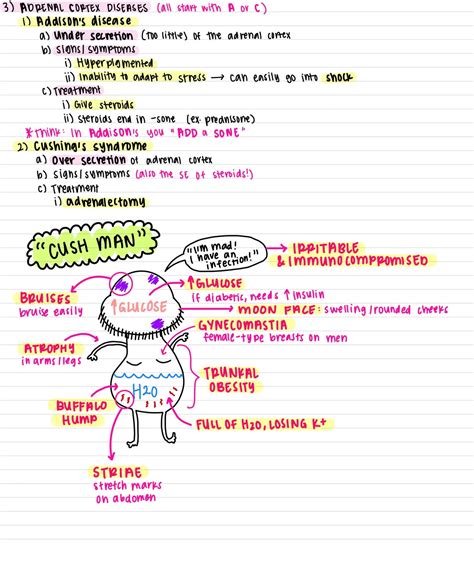 3) ADRENAL CORTEX DISEASES (all start with A or C)
1) Addison's disease
a) under secretion (too little) of the adrenal cortex
b) signs/symptoms
i) Hyperpigmented
ii) Inability to adapt to stress → can easily go into shock
c) Treatment
i) Give steroids
ii) steroids end in -sone (ex. prednisone)
*Think: In Addison's you "ADD a SONE"
2) Cushing's syndrome
a) Over secretion of adrenal cortex
b) signs/symptoms (also the SE of steroids!)
c) Treatment
i) adrenalectomy
"CUSH MAN"
"I'm mad!
I have an
infection!"
→ IRRITABLE
& IMMUNOCOMPROMISED
↑ GLUCOSE
if diabetic, needs ↑ insulin
BRUISES
bruise easily
↑GLUCOSE
MOON FACE: swelling/rounded cheeks
GYNECOMASTIA
female-type breasts on men
ATROPHY
in arms/legs
TRUNKAL
OBESITY
H2O
BUFFALO
HUMP
FULL OF H2O, LOSING K+
STRIAE
stretch marks
on abdomen